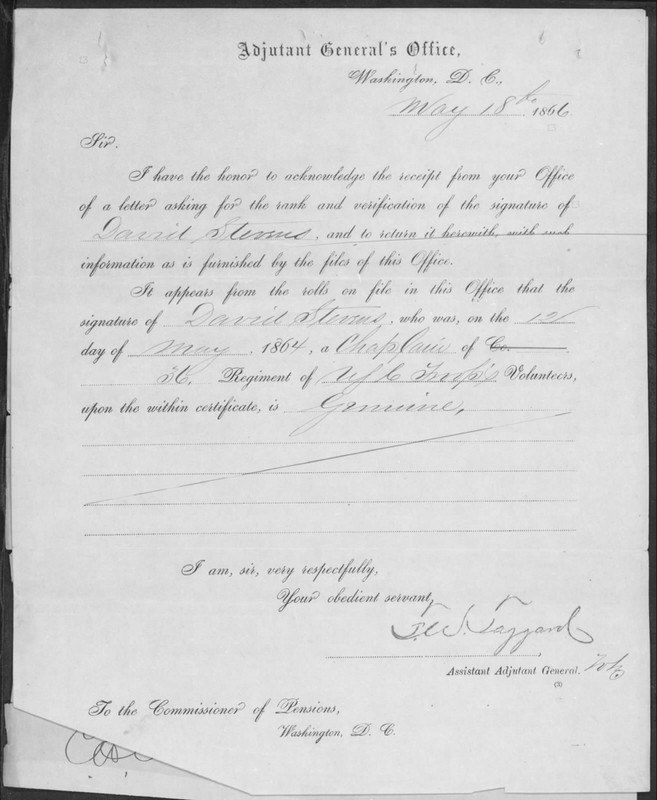 Adjutant General's Office,
Washington, D. C.,
May 18th 1866
Sir.
I have the honor to acknowledge the receipt from your Office
of a letter asking for the rank and verification of the signature of
David Stevens, and to return it herewith, with such
information as is furnished by the files of this Office.
It appears from the rolls on file in this Office that the
signature of David Stevens, who was, on the 12
day of May, 1864, a Chaplain of Co.
Regiment of U.S. C. Troops Volunteers,
upon the within certificate, is Genuine,
I am, sir, very respectfully,
Your obedient servant,
Taggard
Assistant Adjutant General.
(3)
To the Commissioner of Pensions,
Washington, D. C.